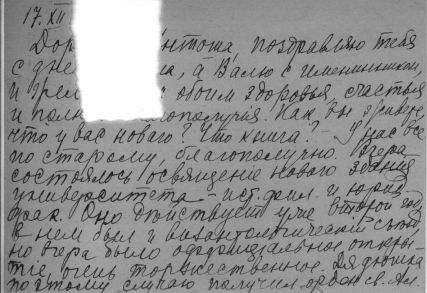 17. XII
Дор нтоша, поздравляю тебя
с дне а, а Валю с именинником,
и обоим здоровья, счастья
и полн благополучия. Как вы живете,
что у вас нового? Что книга? – У нас все
по старому, благополучно. Вчера
состоялось освящение нового здания
университета – ист. фил. и юрид.
фак. Оно действует уже второй год,
в нем был и византологический съезд,
но вчера было официальное откры-
тие, очень торжественное. Дядюшка
по этому случаю получил орден св. Ал.